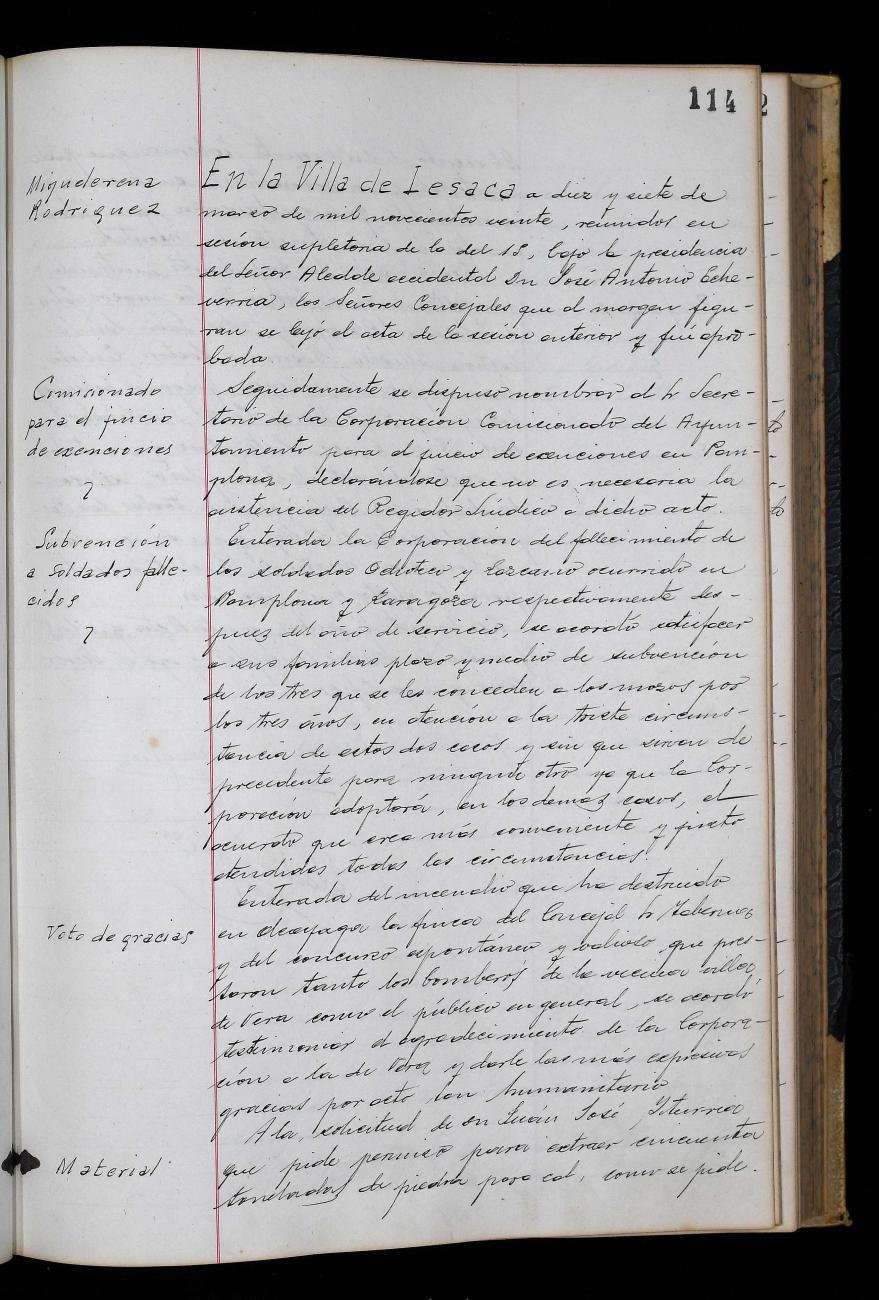 114
Miguelerena
Rodriguez
En la Villa de Lesaca a diez y siete de
marzo de mil novecientos veinte, reunidos en
sesión supletoria de la del 15, bajo la presidencia
del Señor Alcalde accidental Dn José Antonio Eche-
verria, los Señores Concejales que al margen figu-
ran se leyó el acta de la sesión anterior y fué apro-
bada
Comisionado
para el juicio
de exenciones
Seguidamente se dispuso nombrar al Sr Secre-
tario de la Corporación Comisionado del Ayun-
tamiento para el juicio de exenciones en Pam-
plona, declarándose que no es necesaria la
asistencia del Regidor Síndico a dicho acto.
Subvención
a soldados falle-
cidos
Enterada la Corporación del fallecimiento de
los soldados y Lazcano ocurrido en
Pamplona y Zaragoza respectivamente des-
puez del año de servicio, se acordó satisfacer
a sus familias plazo y medio de subvención
de los tres que se les conceden a los mozos por
los tres años, en atención a la triste circuns-
tancia de estos dos casos y sin que sirvan de
precedente para ninguno otro ya que la Cor-
poración adoptará, en los demas casos, el
acuerdo que crea más conveniente y justo
atendidas todas las circunstancias.
Voto de gracias
Enterada del incendio que ha destruido
en la finca del Concejal Sr Tabernas
y del concurso espontáneo y valioso que pres-
taron tanto los bomberos de la vecina villa
de Vera como el público en general, se acordó
testimoniar el agradecimiento de la Corpora-
ción a la de Vera y darle las más expresivas
gracias por acto tan humanitario
Material
A la solicitud de Dn Juan José Iturria
que pide permiso para extraer cincuenta
toneladas de piedra para cal, como se pide.